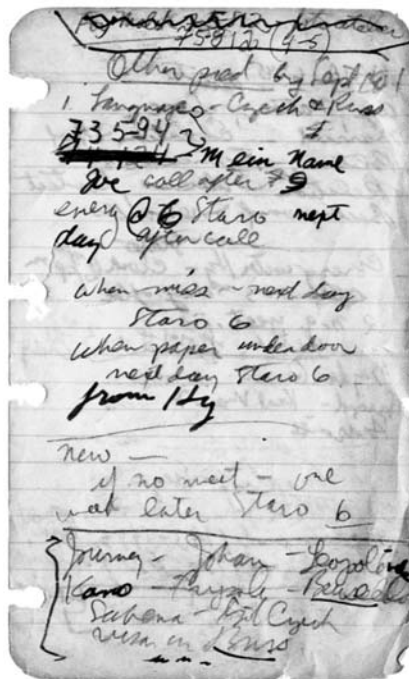 75812 (4-5)
Other prod by Sept 10 1
1. Languages - Czech & Russ
735-94
Mein Name
Joe call after 9
@ 6 Staro next
day after call
when miss - next day
Staro 6
when paper under door
next day Staro 6
from Hy
new -
if no meet - one
week later Staro 6
Journey - Johan - Leopoldv
Kano -
Sabena - Czech
visa in Bruss